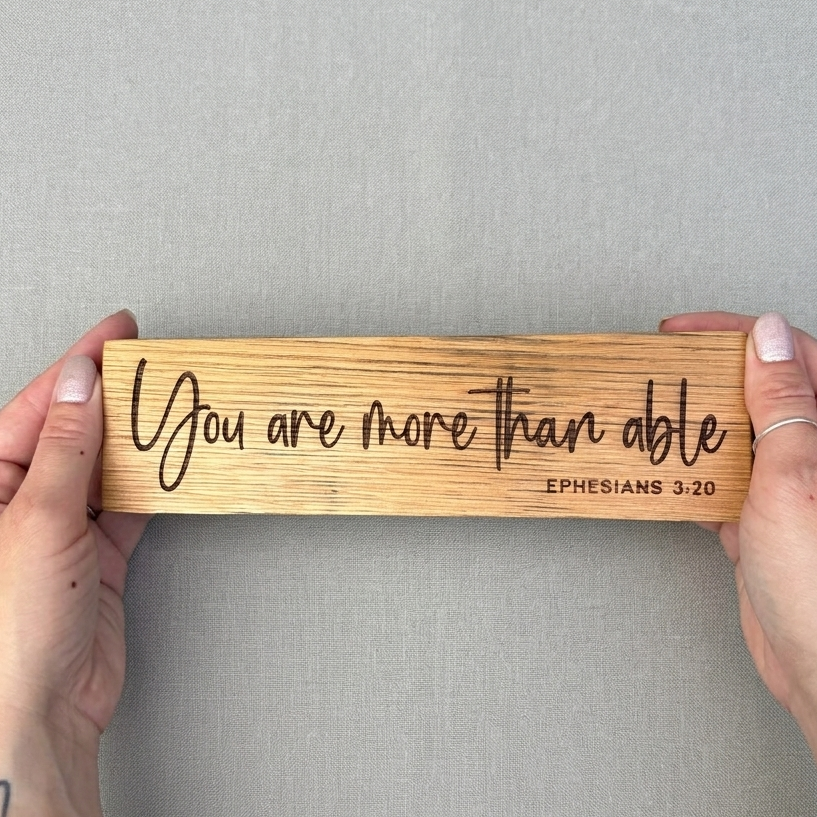 You are more than able
EPHESIANS 3:20